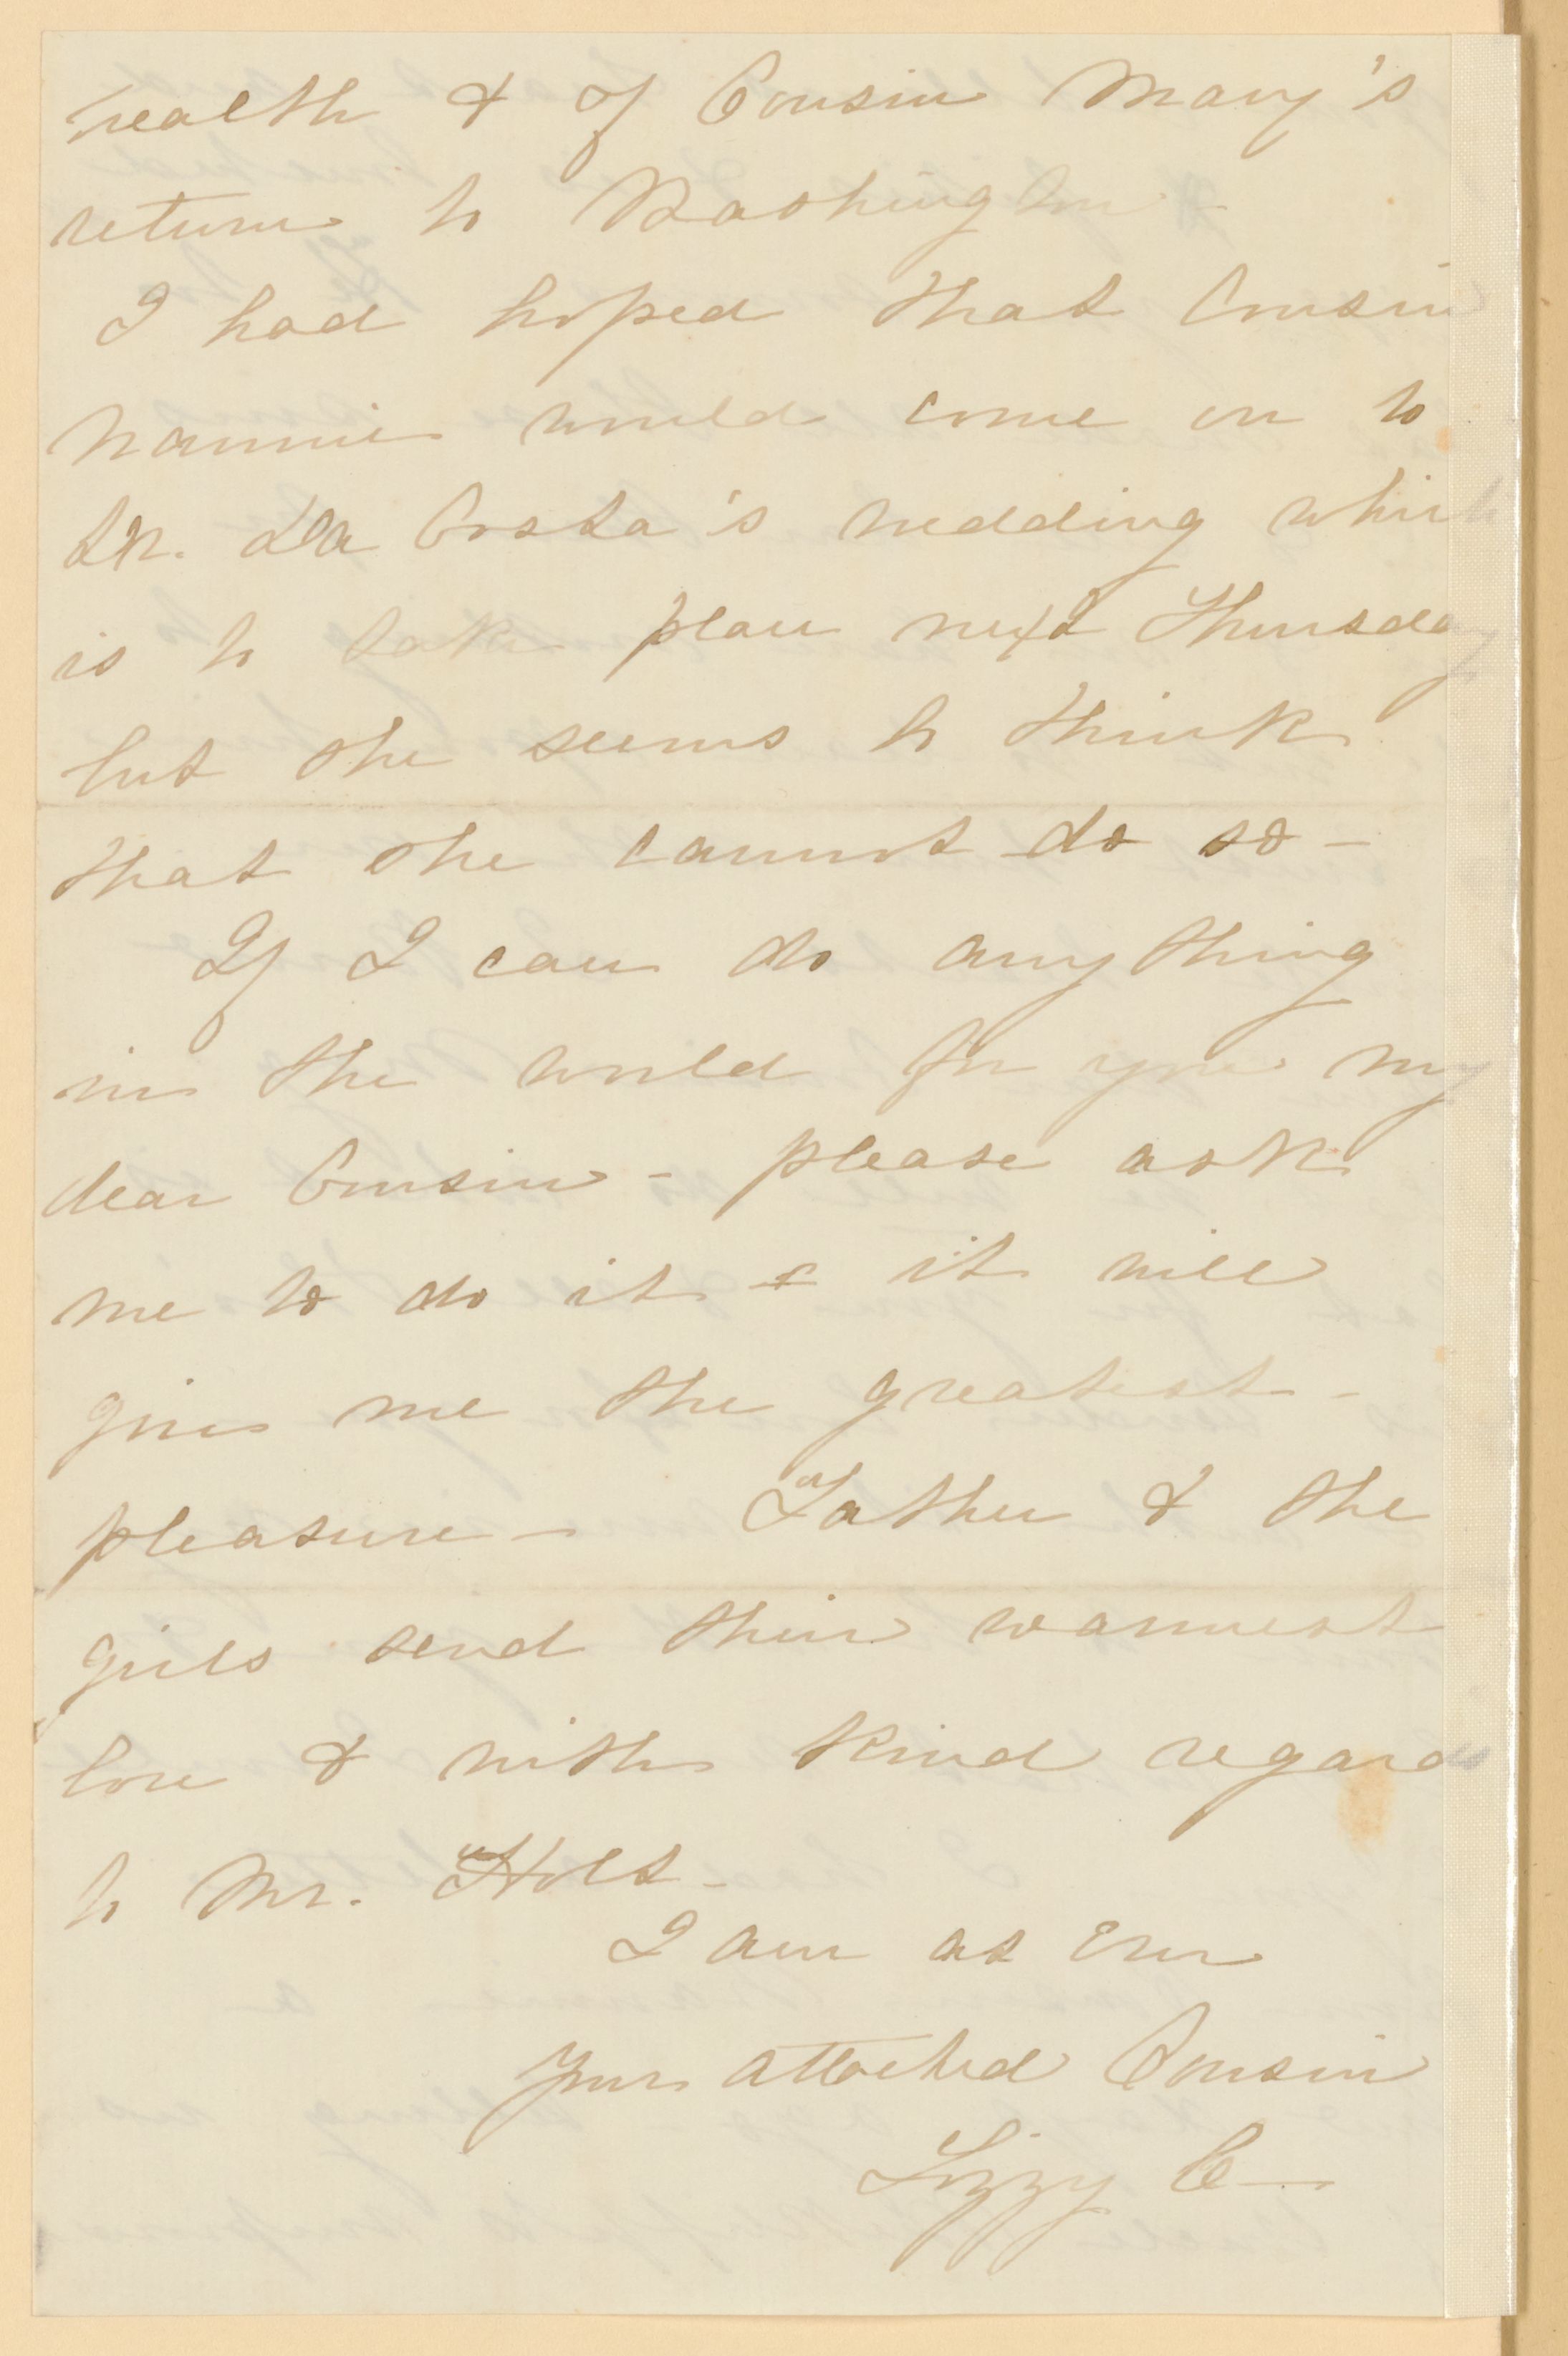 health & of Cousin Mary's
return to Washington -
I had hoped that Cousin
Nannie would come on to
Dr. Da Costa's wedding which
is to take place next Thursday
but she seems to think
that she cannot do so -
If I can do anything
in the world for you my
dear Cousin - please ask
me to do it & it will
give me the greatest -
pleasure - Father & the
girls send their warmest
love & with kind regards
to Mr. Holt -
I am as ever
Your attached Cousin
Lizzy C -